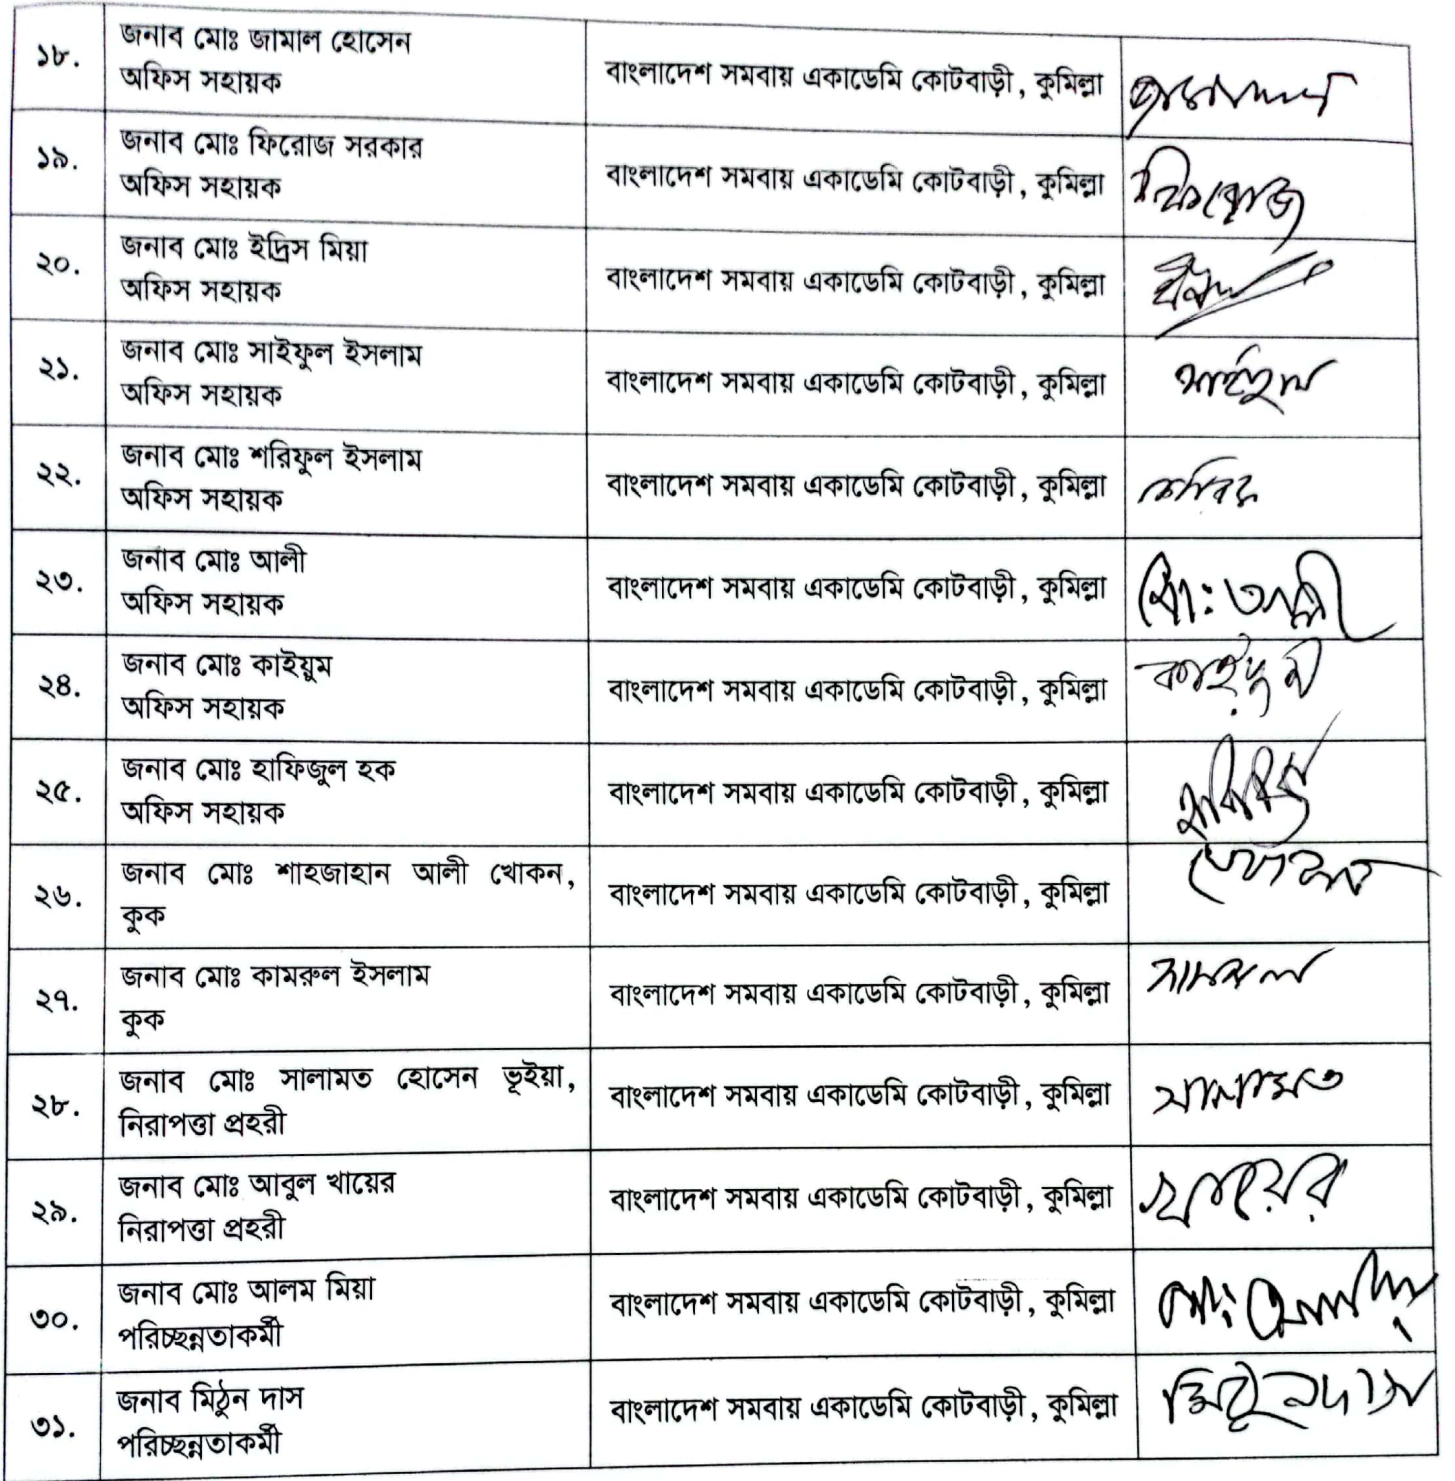 ১৮.
জনাব মোঃ জামাল হোসেন
অফিস সহায়ক
বাংলাদেশ সমবায় একাডেমি কোটবাড়ী, কুমিল্লা
১৯.
জনাব মোঃ ফিরোজ সরকার
অফিস সহায়ক
বাংলাদেশ সমবায় একাডেমি কোটবাড়ী, কুমিল্লা
ফিরোজ
২০.
জনাব মোঃ ইদ্রিস মিয়া
অফিস সহায়ক
বাংলাদেশ সমবায় একাডেমি কোটবাড়ী, কুমিল্লা
২১.
জনাব মোঃ সাইফুল ইসলাম
অফিস সহায়ক
বাংলাদেশ সমবায় একাডেমি কোটবাড়ী, কুমিল্লা
সাইফুল
২২.
জনাব মোঃ শরিফুল ইসলাম
অফিস সহায়ক
বাংলাদেশ সমবায় একাডেমি কোটবাড়ী, কুমিল্লা
২৩.
জনাব মোঃ আলী
অফিস সহায়ক
বাংলাদেশ সমবায় একাডেমি কোটবাড়ী, কুমিল্লা
মো: আলী
২৪.
জনাব মোঃ কাইয়ুম
অফিস সহায়ক
বাংলাদেশ সমবায় একাডেমি কোটবাড়ী, কুমিল্লা
কাইয়ুম
২৫.
জনাব মোঃ হাফিজুল হক
অফিস সহায়ক
বাংলাদেশ সমবায় একাডেমি কোটবাড়ী, কুমিল্লা
২৬.
জনাব মোঃ শাহজাহান আলী খোকন,
কুক
বাংলাদেশ সমবায় একাডেমি কোটবাড়ী, কুমিল্লা
খোকন
২৭.
জনাব মোঃ কামরুল ইসলাম
কুক
বাংলাদেশ সমবায় একাডেমি কোটবাড়ী, কুমিল্লা
২৮.
জনাব মোঃ সালামত হোসেন ভূইয়া,
নিরাপত্তা প্রহরী
বাংলাদেশ সমবায় একাডেমি কোটবাড়ী, কুমিল্লা
সালামত
২৯.
জনাব মোঃ আবুল খায়ের
নিরাপত্তা প্রহরী
বাংলাদেশ সমবায় একাডেমি কোটবাড়ী, কুমিল্লা
খায়ের
৩০.
জনাব মোঃ আলম মিয়া
পরিচ্ছন্নতাকর্মী
বাংলাদেশ সমবায় একাডেমি কোটবাড়ী, কুমিল্লা
৩১.
জনাব মিঠুন দাস
পরিচ্ছন্নতাকর্মী
বাংলাদেশ সমবায় একাডেমি কোটবাড়ী, কুমিল্লা
মিঠুন দাস